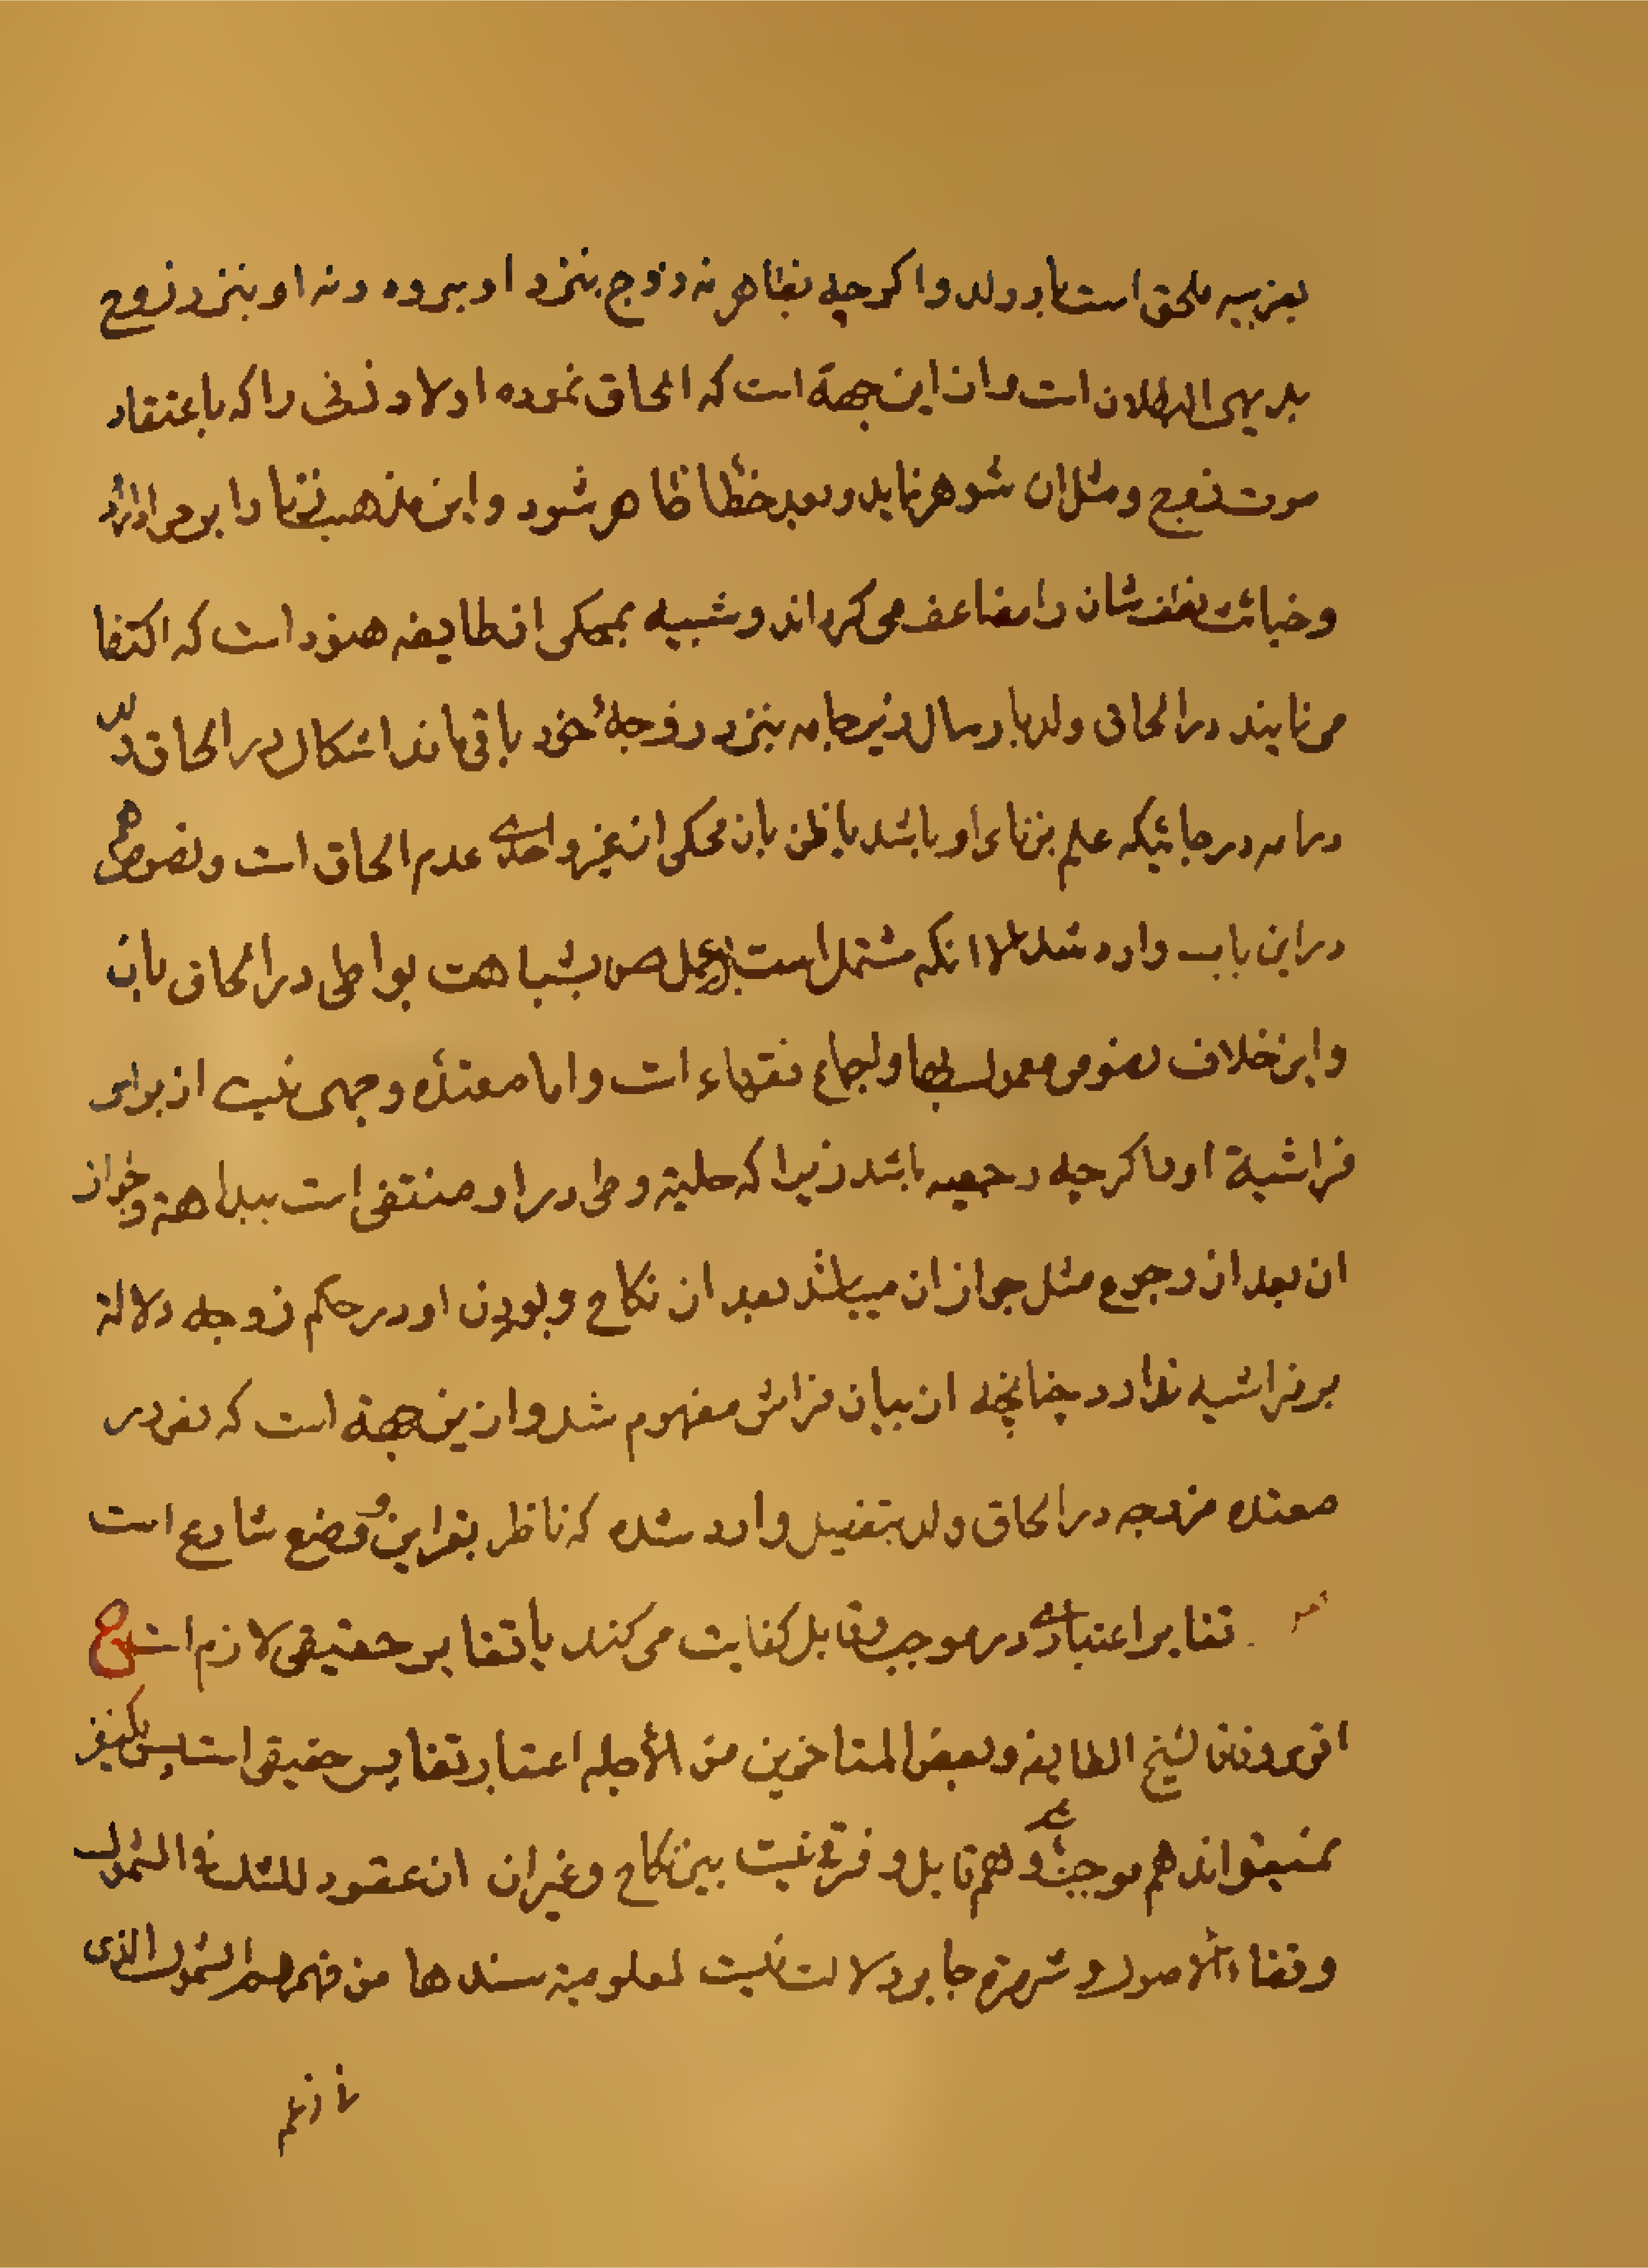 بعزبیه ملحق است باو ولد و اکرچه بظاهر نه زوج بنزد او برود و نه او بنزد زوج
بدیهی البطلان است و از این جهة است که الحاق نموده اولاد زنی را که باعتقاد
موت زوج و مثل ان شوهر نماید و بعد خطأ ظاهر شود و این مذهب زنا را
و خباثت نطف شان را مضاعف می کرداند و شبیه بمحکی از طایفه هنود است که اکتفا
می نمایند در الحاق ولد بارسال زیرجامه بنزد زوجهٔ خود باقی ماند اشکال در الحاق ولد
در امه در جائیکه علم بزناء او باشد یا ظن بان محکی از غیر واحدی عدم الحاق است و نصوص هم
در این باب وارد شده الا انکه مشتمل است بشباهت بواطی در الحاق بان
و این خلاف نصوص معمول بها و اجماع فقهاء است و اما معتده وجهی نیست از برای
فراشیة او و اکرچه رجعیه باشد زیرا که حلیة وطی در او منتفی است ببداهة و جواز
ان بعد از رجوع مثل جواز ان میباشد بعد از نکاح و بودن او در حکم زوجه دلالة
بر فراشیه ندارد چنانچه از بیان فراش مفهوم شد و از ین جهة است که نص در
معتده مزوجه در الحاق ولد بتفصیل وارد شده که ناظر بقراین و وضع شارع است
تغایر اعتباری در موجب و قابل کفایت می کند یا تغایر حقیقی لازم است ج
اقوی وفاقا لشیخ الطایفه و بعض المتاخرین من الأجله اعتبار تغایر حقیقی است پس یکنفر
نمیتواند هم موجب شود و هم قابل و فرقی نیست بین نکاح و غیر ان از عقود للشك فی الشمول
و قضاء الأصول و شهرة جابر دلالت نیست لمعلومیة سندها من فهمهم الشمول الذی
نازعم